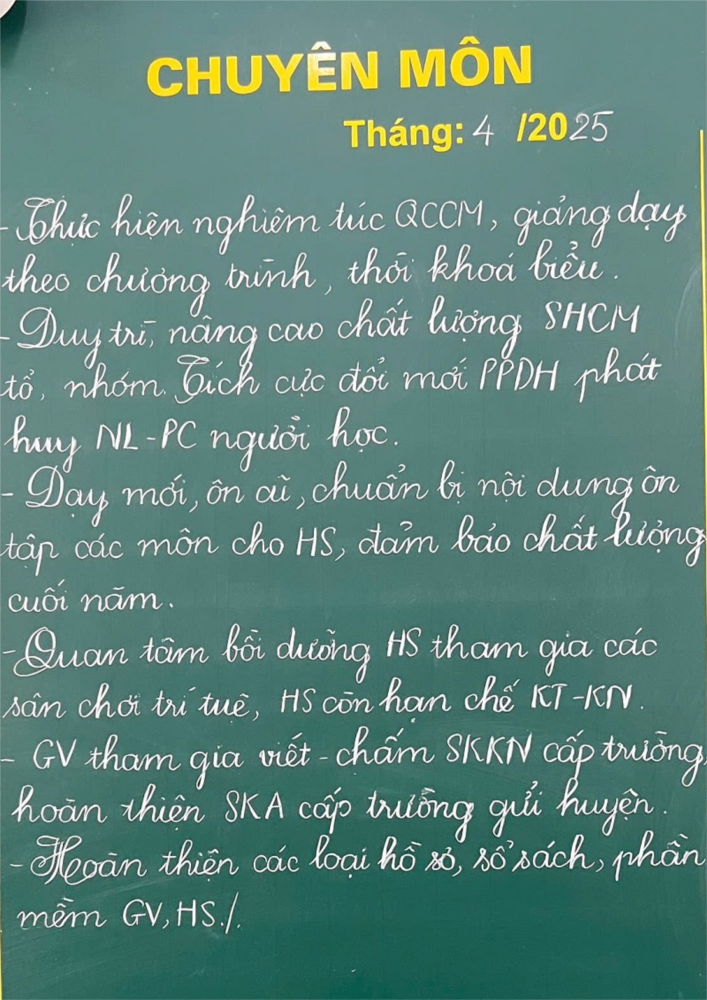 CHUYÊN MÔN
Tháng: 4 /2025
- Thực hiện nghiêm túc QCCM, giảng dạy
theo chương trình, thời khoá biểu.
- Duy trì, nâng cao chất lượng SHCM
tổ, nhóm. Tích cực đổi mới PPDH phát
huy NL-PC người học.
- Dạy mới, ôn cũ, chuẩn bị nội dung ôn
tập các môn cho HS, đảm bảo chất lượng
cuối năm.
- Quan tâm bồi dưỡng HS tham gia các
sân chơi trí tuệ, HS còn hạn chế KT-KN.
- GV tham gia viết - chấm SKKN cấp trường,
hoàn thiện SKA cấp trường gửi huyện.
- Hoàn thiện các loại hồ sơ, sổ sách, phần
mềm GV, HS./.